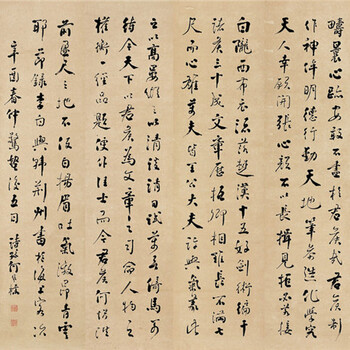 疇曩心迹安敢不盡於君侯哉君侯制
作神侔明德行動天地筆參造化學究
天人幸願開張心顏不以長揖見拒必若接
白隴西布衣流落楚漢十五好劍術徧干
諸侯三十成文章歷抵卿相雖長不滿七
尺而心雄萬夫王公大夫許與氣義此
之以高宴縱之以清談請日試萬言倚馬可
待今天下以君侯為文章之司命人物之
權衡一經品題便作佳士而今君侯何惜階
前盈尺之地不使白揚眉吐氣激昂青雲
耶節錄李白與韓荊州書於海上客次
辛酉春仲驚蟄後五日